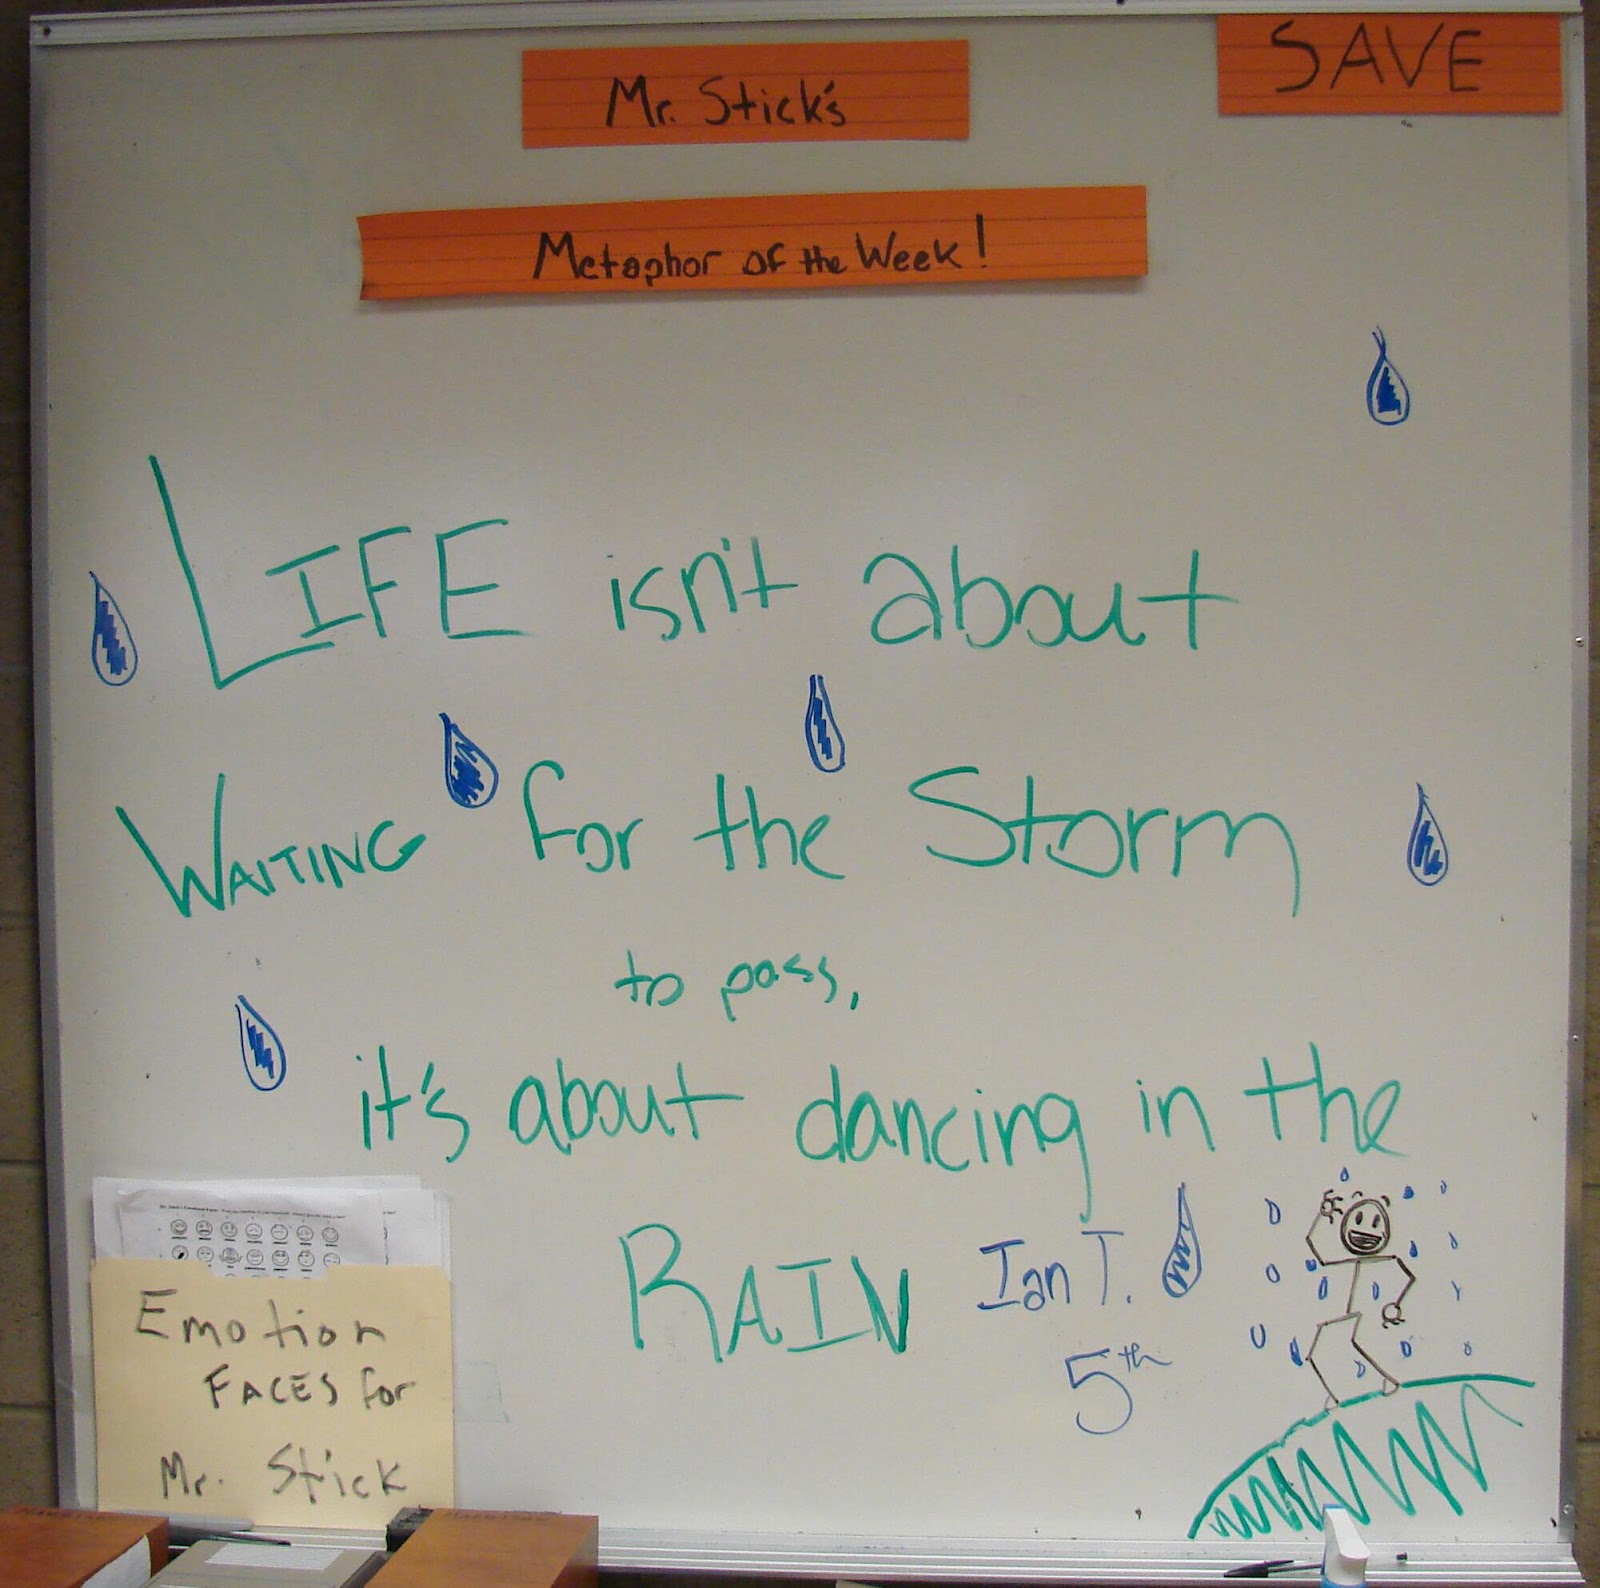 SAVE
Mr. Stick's
Metaphor of the Week!
LIFE isn't about
WAITING for the Storm
to pass,
it's about dancing in the
RAIN Ian T.
5th
Emotion
FACES for
Mr. Stick